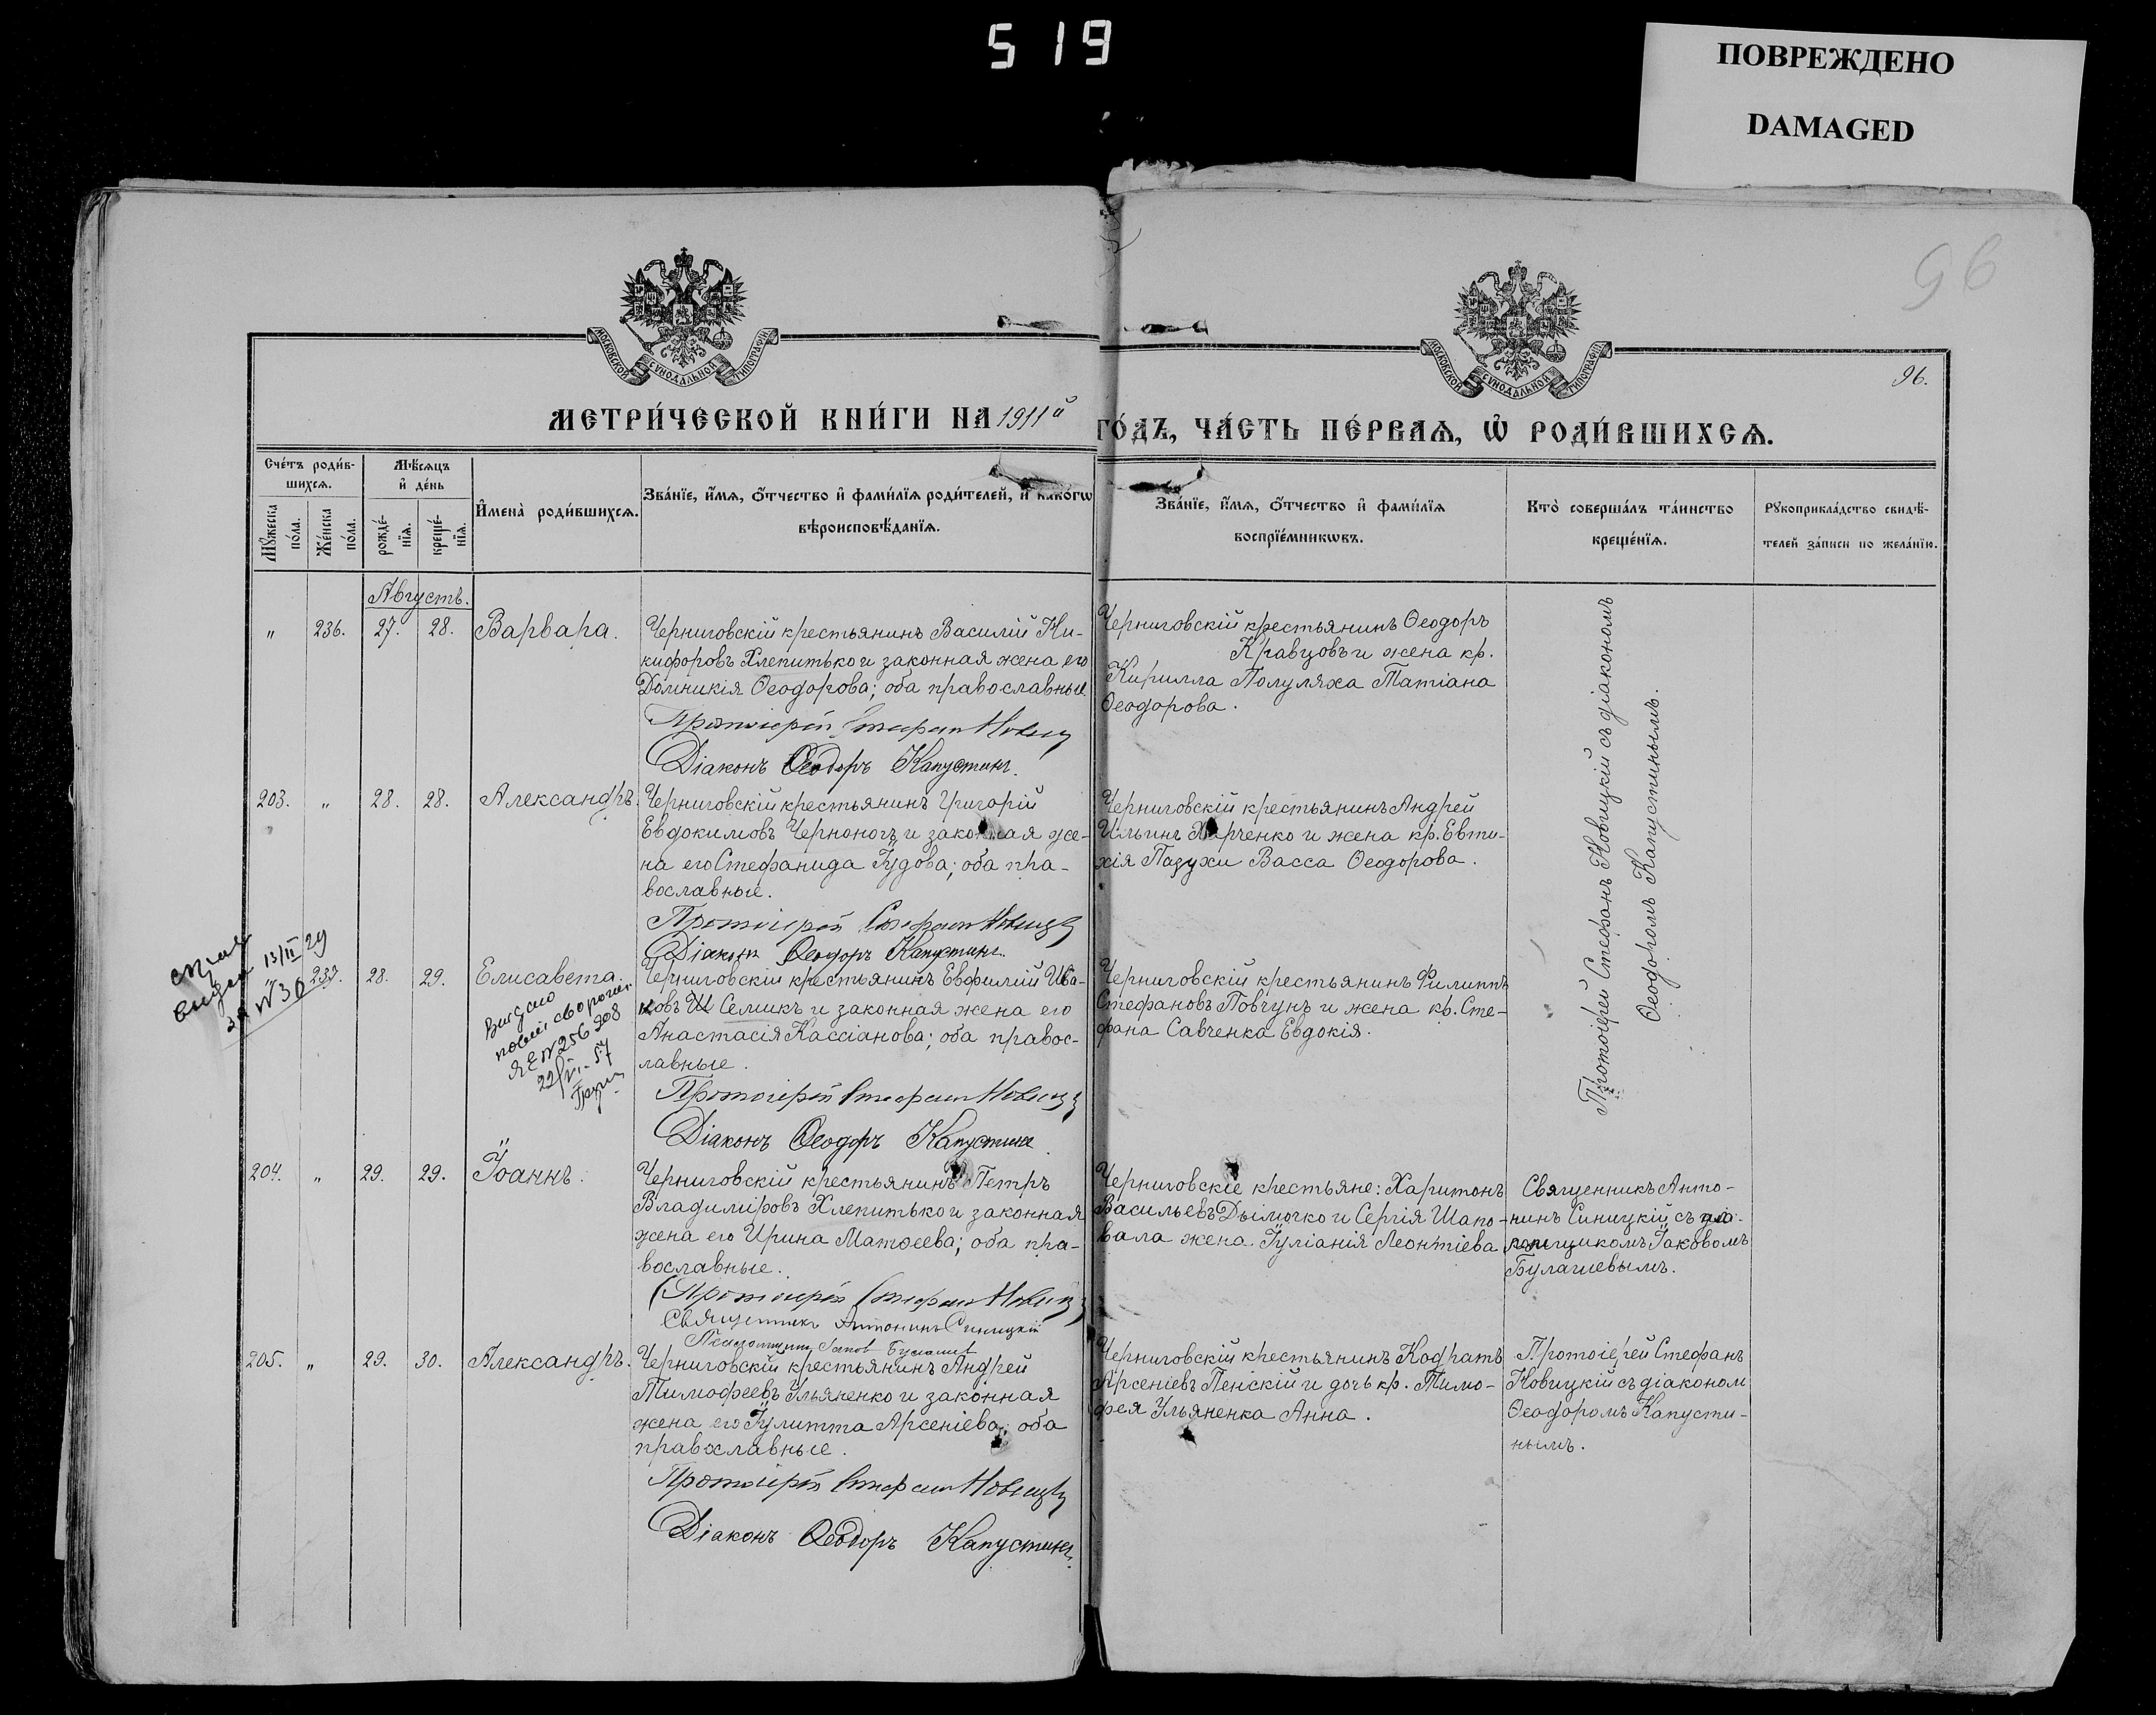 519
ПОВРЕЖДЕНО
DAMAGED
96
96.
МОСКОВСКОЙ СУНОДАЛЬНОЙ ТИПОГРАФІИ
МОСКОВСКОЙ СУНОДАЛЬНОЙ ТИПОГРАФІИ
МЕТРИ́ЧЕСКОЙ КНИ́ГИ НА 1911й ГО́ДЪ, ЧА́СТЬ ПЕ́РВАѦ, Ѡ РОДИ́ВШИХСѦ.
Сче́тъ роди́в-
шихсѧ.
Мѣ́сѧцъ
и҆ де́нь
Мꙋ́жеска
по́ла.
Же́нска
по́ла.
рожде́-
нїѧ.
креще́-
нїѧ.
И҆мена̀ роди́вшихсѧ.
Зва́нїе, и҆́мѧ, ѻ҆́тчество и҆ фами́лїѧ роди́телей, и҆ како́гѡ
вѣроисповѣ́данїѧ.
Зва́нїе, и҆́мѧ, ѻ҆́тчество и҆ фами́лїѧ
воспрїе́мникѡвъ.
Кто̀ соверша́лъ та́инство
креще́нїѧ.
Рꙋкоприкла́дство свидѣ́-
телей за́писи по жела́нїю.
Августъ.
" 236. 27. 28. Варвара.
Черниговскій крестьянинъ Василій Ни-
кифоровъ Хлепитько и законная жена его
Домникія Ѳеодорова; оба православные
Протоіерей Стефанъ Новицк
Діаконъ Ѳеодоръ Капустинъ.
Черниговскій крестьянинъ Ѳеодоръ
Кравцовъ и жена кр.
Кирилла Полуляха Татіана
Ѳеодорова.
Протоіерей Стефанъ Новицкій съ діакономъ
Ѳеодоромъ Капустинымъ.
203. " 28. 28. Александръ.
Черниговскій крестьянинъ Григорій
Евдокимовъ Черноногъ и законная же-
на его Стефанида Іудова; оба пра-
вославные.
Протоіерей Стефанъ Новицк
Діаконъ Ѳеодоръ Капустинъ.
Черниговскій крестьянинъ Андрей
Ильинъ Харченко и жена кр. Евти-
хія Пазухи Васса Ѳеодорова.
13/II 29
за № 30
237. 28. 29. Елисавета.
Видано
№ 256 208
22/VI-57
Черниговскій крестьянинъ Евфимій Ива-
новъ Семикъ и законная жена его
Анастасія Кассіанова; оба правос-
лавные.
Протоіерей Стефанъ Новицк
Діаконъ Ѳеодоръ Капустинъ
Черниговскій крестьянинъ Филиппъ
Стефановъ Повчунъ и жена кр. Сте-
фана Савченка Евдокія.
204. " 29. 29. Іоаннъ.
Черниговскій крестьянинъ Петръ
Владиміровъ Хлепитько и законная
жена его Ирина Матѳеева; оба пра-
вославные.
Протоіерей Стефанъ Новицк
Священникъ Антонинъ Синицкій
Псаломщикъ Іаковъ Булашев
Черниговскіе крестьяне: Харитонъ
Васильевъ Дымочко и Сергія Шапо-
вала жена Іуліанія Леонтіева
Священникъ Анто-
нинъ Синицкій съ
Іаковомъ
Булашевымъ.
205. " 29. 30. Александръ.
Черниговскій крестьянинъ Андрей
Тимофеевъ Ульяненко и законная
жена его Іулитта Арсеніева; оба
православные.
Протоіерей Стефанъ Новицк
Діаконъ Ѳеодоръ Капустинъ.
Черниговскій крестьянинъ Кодратъ
Арсеніевъ Пенскій и дочь кр. Тимо-
фея Ульяненка Анна.
Протоіерей Стефанъ
Новицкій съ діаконом
Ѳеодоромъ Капусти-
нымъ.